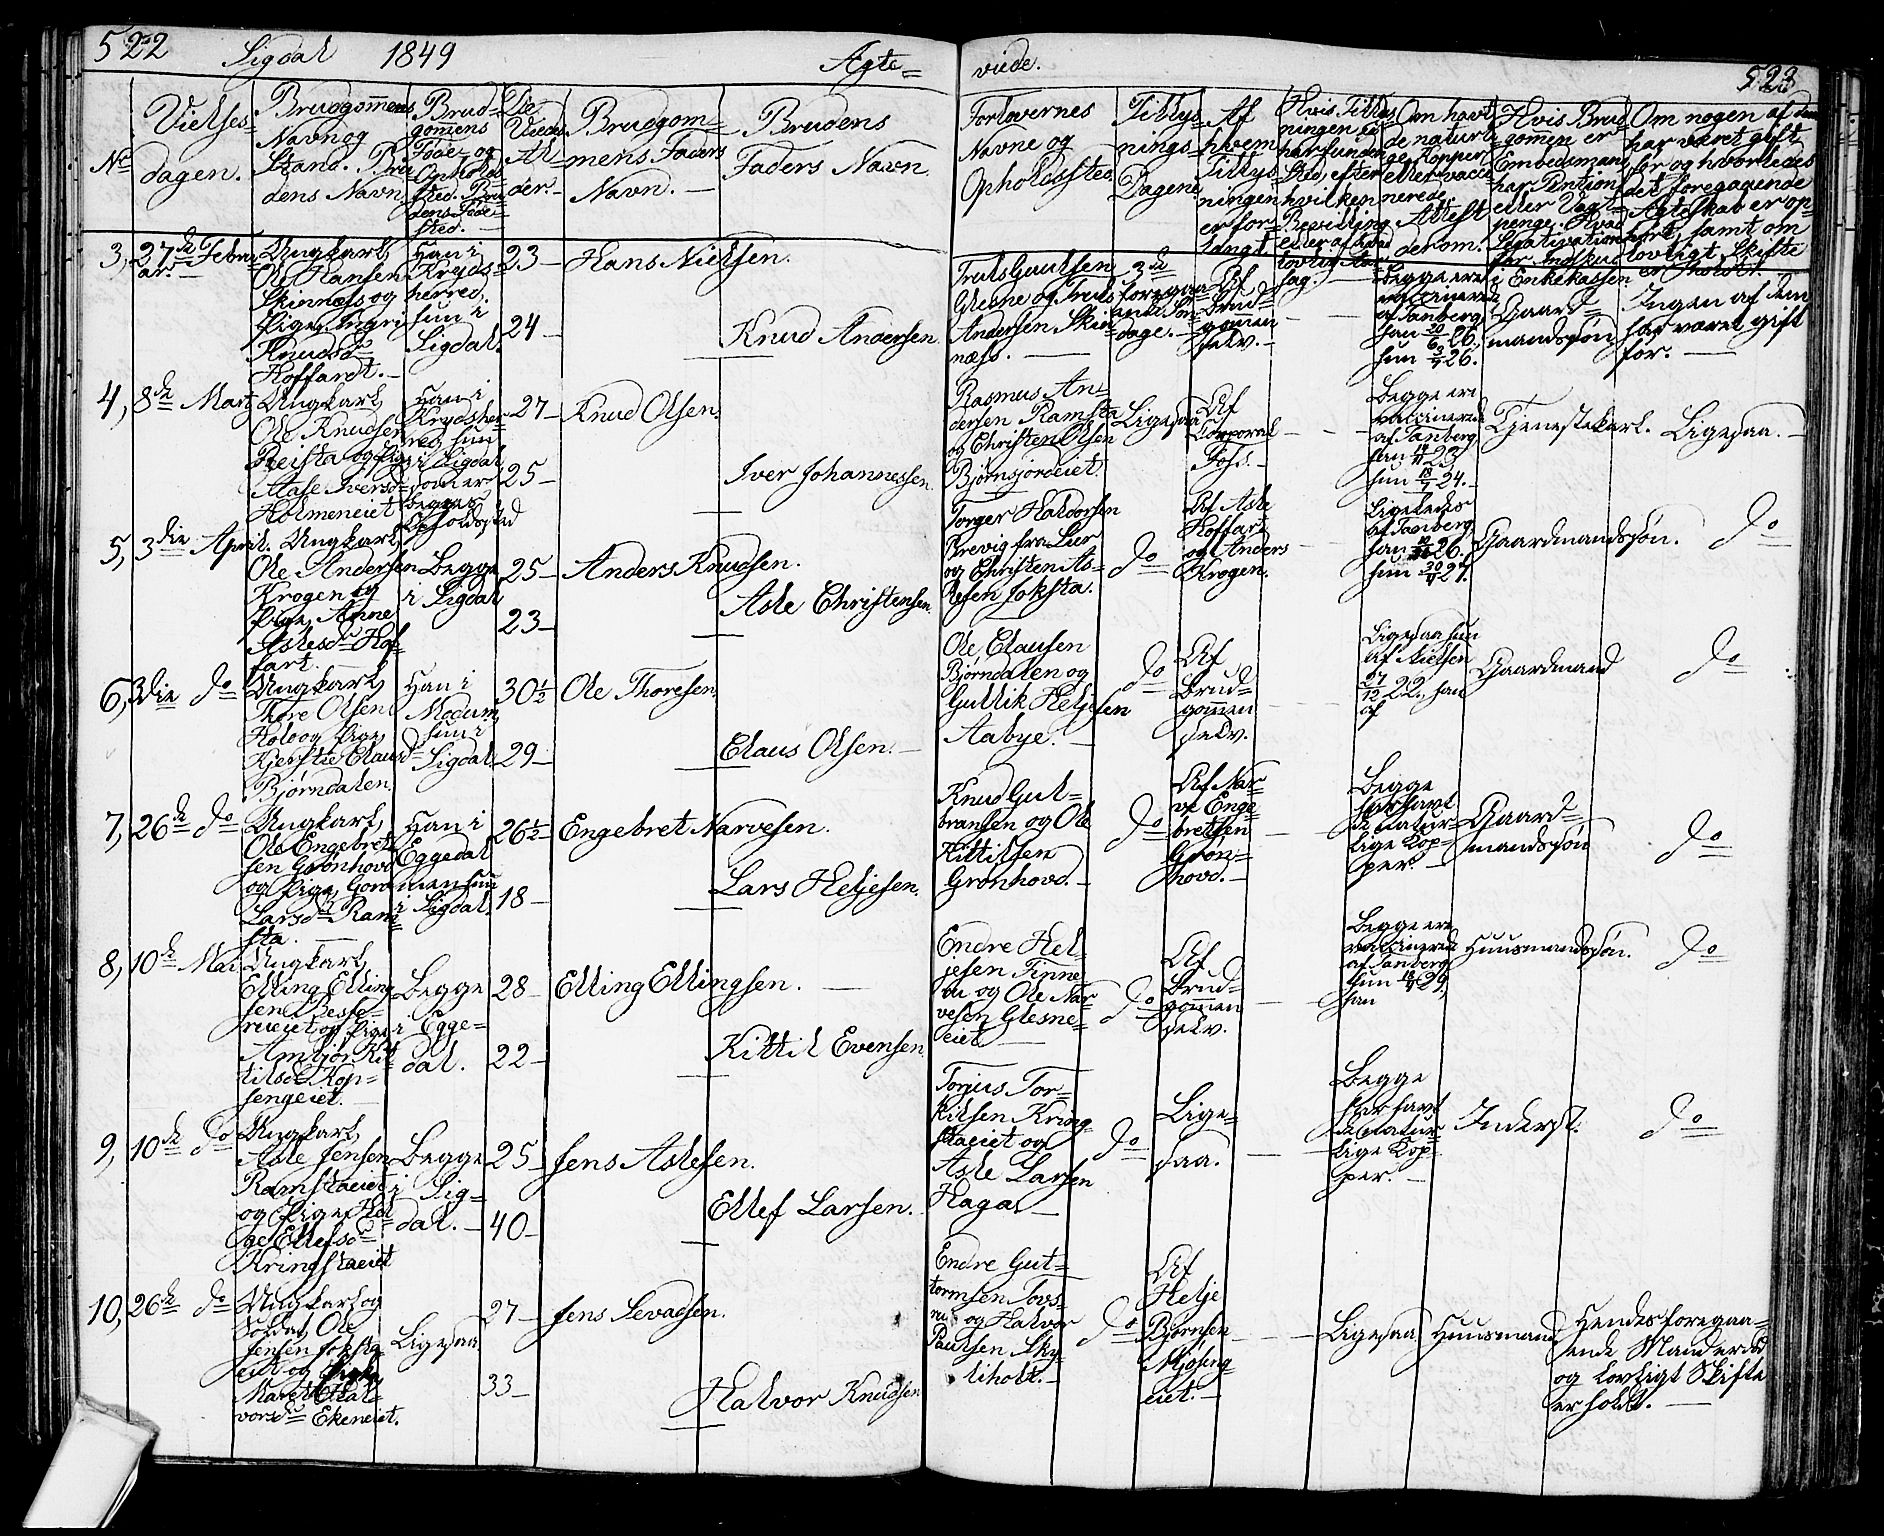 522 Sigdal 1849 Ægte=
viede. 523
No
Vielses-
dagen.
Brudgom̄ens
Navn og
Stand. Bru
dens Navn
Brud-
gomens
Føde- og
Opholds
sted. Bru
dens Føde-
sted.
De
Viedes
Al-
der
Brudgom-
mens Faders
Navn.
Brudens
Faders Navn
Forlovernes
Navne og
Opholdssted
Tillys-
nings-
Dagene
Af
hvem
Tillys-
ningen
er for-
langt.
Om havt
de naturli-
ge Kopper
eller vacci
nerede
Attest
derom.
Hvis Brud
gomen er
Embedsmand
har Pention
eller Vagt-
penge. Hvad
Om nogen af dem
har været gift
før og hvorledes
det foregaaende
Ægteskab er op-
hørt, samt om
lovligt Skifte
er holdt.
3, 27de Febru
ar
Ungkarl
Ole Hansen
Skinnæs og
Pige Ingri
Knudsdr
Hoffart.
Han i
Kryds-
herred,
hun i
Sigdal.
23
24
Hans Nielsen.
Knud Andersen.
Truls Gulliksen
Glesne og Truls
Andersen Skin
næss.
3de
foregaa-
ende Søn-
dage.
Af
Brud=
gom̄en
selv.
Begge ere
vaccinerede
af Tanberg
han 20/6 26.
hun 3/7 26.
Gaard=
mandssøn
Ingen af dem
har været gift
før.
4, 8de Marts
Ungkarl
Ole Knudsen
Reista og Pige
Aase Iversd
Holmeneiet
Han i
Krydsher
red, hun
i Sigdal
som er
begges
Opholdssted
27
25
Knud Olsen.
Iver Johannessen.
Rasmus An-
dersen Ramsta
og Christen Olsen
Bjørnsjordeiet.
Ligesaa
Af
Corporal
Foss.
Begge ere
vaccinerede
af Tanberg
han 23
hun 24.
Tjenestekarl.
Ligesaa.
5, 3die April.
Ungkarl
Ole Andersen
Krogen og
Pige Anne
Aslesdr Hof
fart.
Begge
i Sigdal
25
23
Anders Knudsen.
Asle Christensen.
Torger Halvorsen
Brevig fra Lier
og Christen As-
lesen Joksta.
Do
Af Asle
Hoffart
og Anders
Krogen.
Ligeledes
af Tanberg
han 26.
hun 30/9 27.
Gaardmandssøn.
Do
6, 3die Do
Ungkarl
Thore Olsen
Holo og Pige
Kjerstie Clausd
Bjørndalen.
Han i
Modum,
hun i
Sigdal
30½
29
Ole Thoresen
Claus Olsen.
Ole Clausen
Bjørndalen og
Gullik Heljesen
Aabye.
Do
Af
Brud=
gom̄en
selv.
Ligesaa hun
af Nielsen
27/12 22., han
af
Gaardmand
Do
7, 26de Do
Ungkarl
Ole Engebret
sen Grønhovd
og Pige Goro
Larsdr Ram
sta.
Han i
Eggedal
men hun
i Sigdal
26½
18
Engebret Narvesen.
Lars Heljesen.
Knud Gul-
bransen og Ole
Kittilsen
Grønhovd.
Do
Af Nar-
ve Enge
bretsen
Grøn-
hovd.
Begge
har havt
de natur-
lige Kop-
per.
Gaard=
mandssøn
Do
8, 10de Mai
Ungkarl
Elling Elling
sen Besse-
rudeiet og Pige
Ambjør Kit
tilsdr Kop-
sengeiet.
Begge
i Egge=
dal.
28
22
Elling Ellingsen.
Kittil Evensen
Endre Hel
jesen Finne
og Ole Nar-
vesen Glesne-
eiet
Do
Af
Brud=
gom̄en
selv.
Begge ere
vaccinerede
af Tanberg
hun 29,
han
Huusmandssøn.
Do
9, 10de Do
Ungkarl
Asle Jensen
Ramstaeiet
og Pige Hel
ge Ellefsdr
Kringstaeiet
Begge
i Sig=
dal.
25
40
Jens Aslesen.
Ellef Larsen.
Torjus Tor-
kilsen Kring-
staeiet og
Asle Larsen
Haga
Do
Lige=
saa.
Begge
har havt
de natur-
lige Kop-
per.
Inderst.
Do
10, 26de Do
Ungkarl og
Soldat Ole
Jensen Joksta
eiet og
Maret Hal-
vorsdr Ekeneiet.
Ligesaa.
27
33
Jens Sevadsen.
Halvor Knudsen
Endre Gut-
tormsen Tovs-
rud og Halvor
Paulsen Sky
liholt.
Do
Af
Helje
Bjørnsen
Mjøsing
eiet.
Ligesaa
Huusmand
Hendes foregaa=
ende Mand er død
og lovligt Skifte
er holdt.